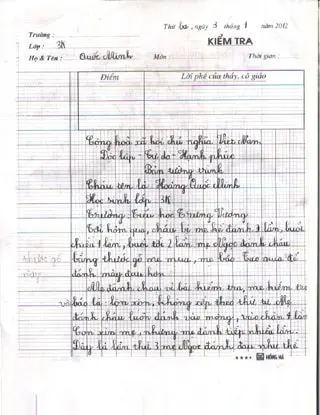 Thứ ba, ngày 3 tháng 1 năm 2012
Trường:
Lớp: 3K
KIỂM TRA
Họ & Tên: Quốc Minh Môn: Thời gian:
Điểm Lời phê của thầy, cô giáo
Cộng hoà xã hội chủ nghĩa Việt Nam
Độc lập - Tự do - Hạnh phúc
Bản tường trình
Cháu tên là Hoàng Quốc Minh
Học sinh lớp 3K
Trường: Tiểu học Trưng Vương
Tối hôm qua, cháu bị mẹ kế đánh 1 lần, buổi
chiều 1 lần, buổi tối 2 lần mẹ Ngọc đánh cháu
bằng thước gỗ mẹ mua, mẹ bảo Tao mua để
đánh mày đấy con
Mẹ đánh cháu vì bài kiểm tra, mẹ kiểm tra
và bảo là lộn xộn, không xếp theo thứ tự Mẹ
đánh cháu luôn đánh vào mông, vào chân 1 lần
Con xin mẹ, nhưng mẹ đánh tiếp nhiều lần.
Đây là lần thứ 3 mẹ Ngọc đánh đau như thế
HỒNG HÀ